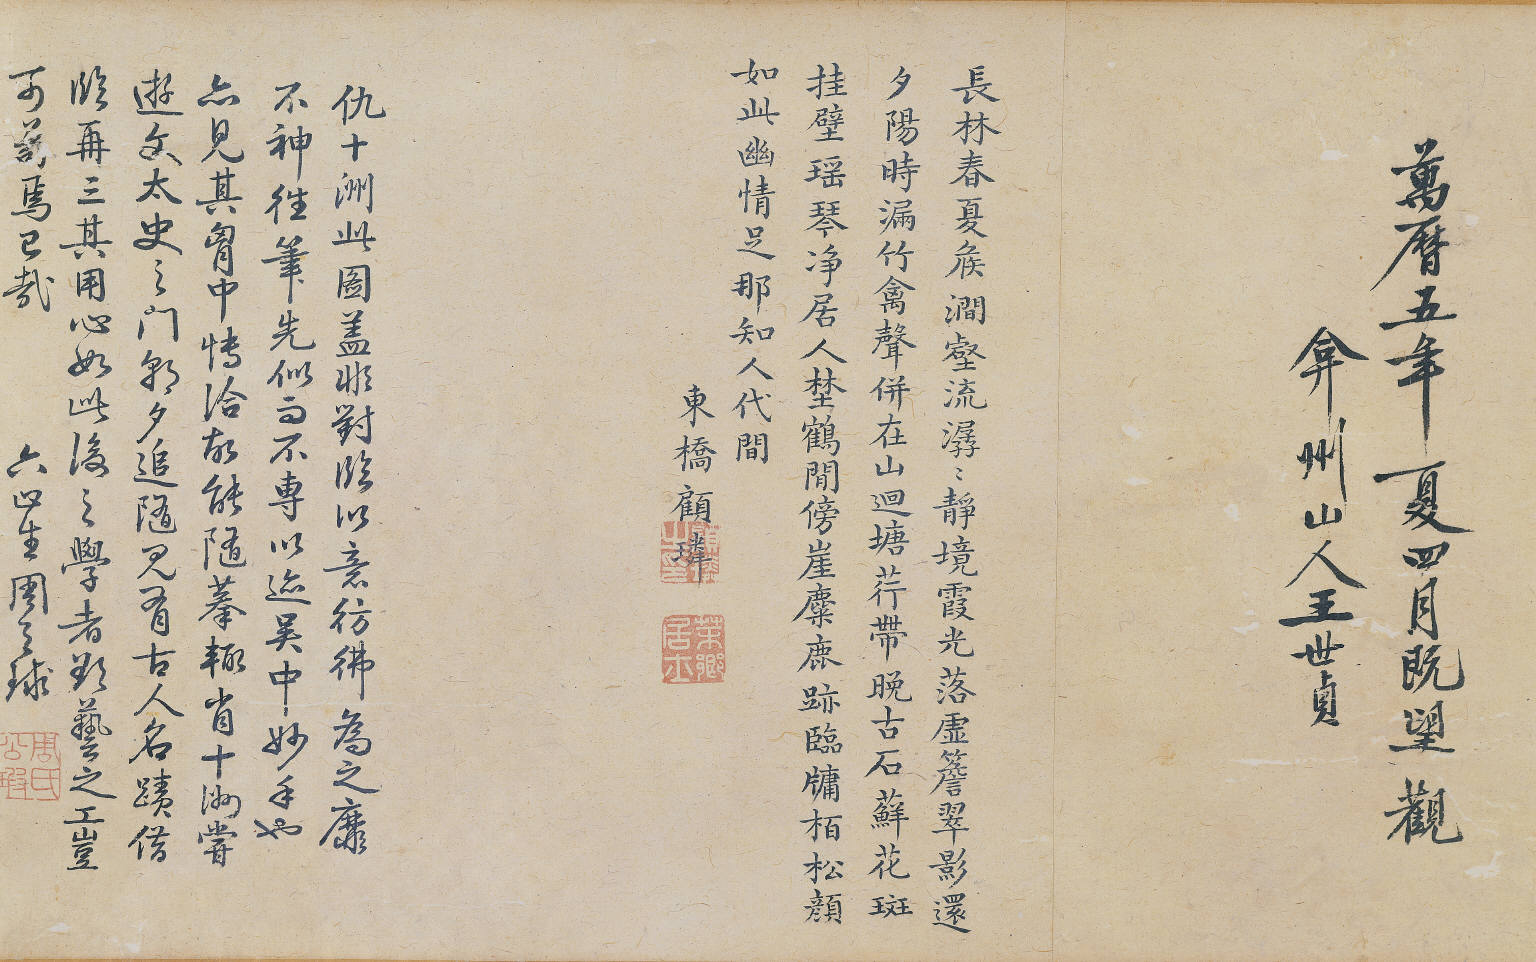 萬曆五年夏四月既望觀
弇州山人王世貞
長林春夏候澗壑流潺〻靜境霞光落虛簷翠影還
夕陽時漏竹禽聲併在山迴塘荇帶晚古石蘚花斑
挂壁瑶琴净居人埜鶴閒傍崖麋鹿跡臨牗栢松顔
如此幽情足那知人代間
東橋顧璘
仇十洲此圖蓋非對臨以意彷彿為之靡
不神徃筆先似而不專以迹吳中妙手也
亦見其胷中博洽故能隨摹輙肖十洲嘗
遊文太史之門朝夕追隨見有古人名蹟借
臨再三其用心如此後之學者於藝之工豈
可苟焉已哉
六止生周天球
周氏公瑕